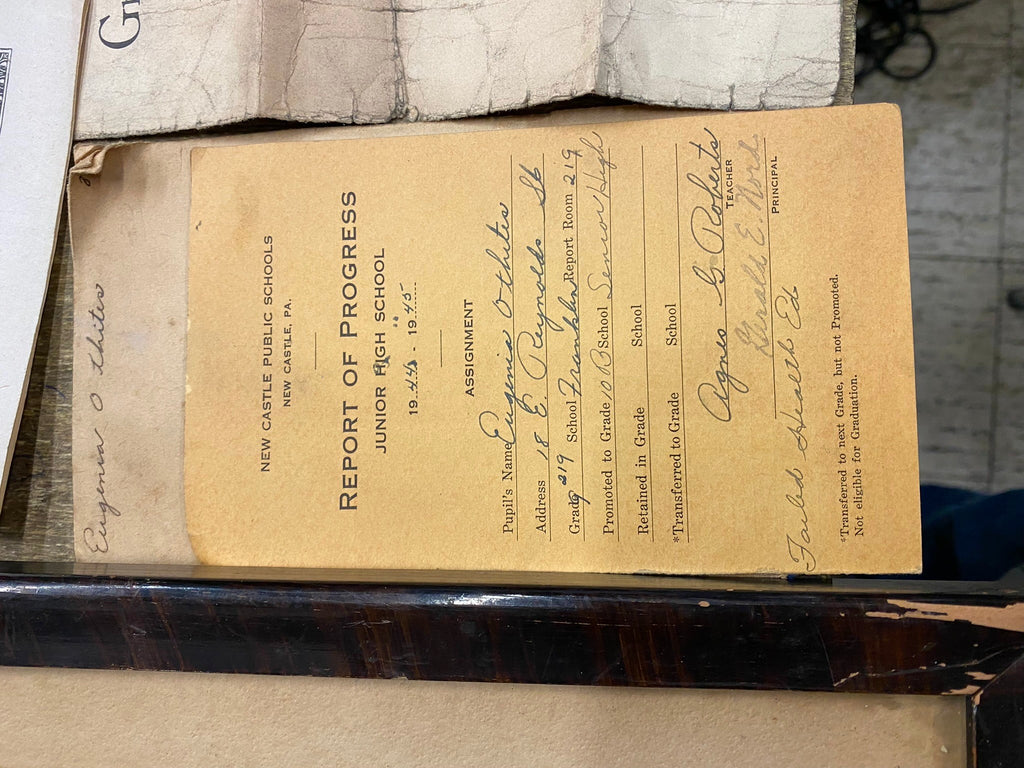 Eugenia Othites
NEW CASTLE PUBLIC SCHOOLS
NEW CASTLE, PA.
REPORT OF PROGRESS
JUNIOR HIGH SCHOOL
1944 - 1945
ASSIGNMENT
Pupil's Name Eugenia Othites
Address 18 E. Reynolds St
Grade 219 School Franklin Report Room 219
Promoted to Grade 10B School Senior High
Retained in Grade School
*Transferred to Grade School
Agnes G Roberts
TEACHER
Gerald E.
PRINCIPAL
Failed Health Ed
*Transferred to next Grade, but not Promoted.
Not eligible for Graduation.